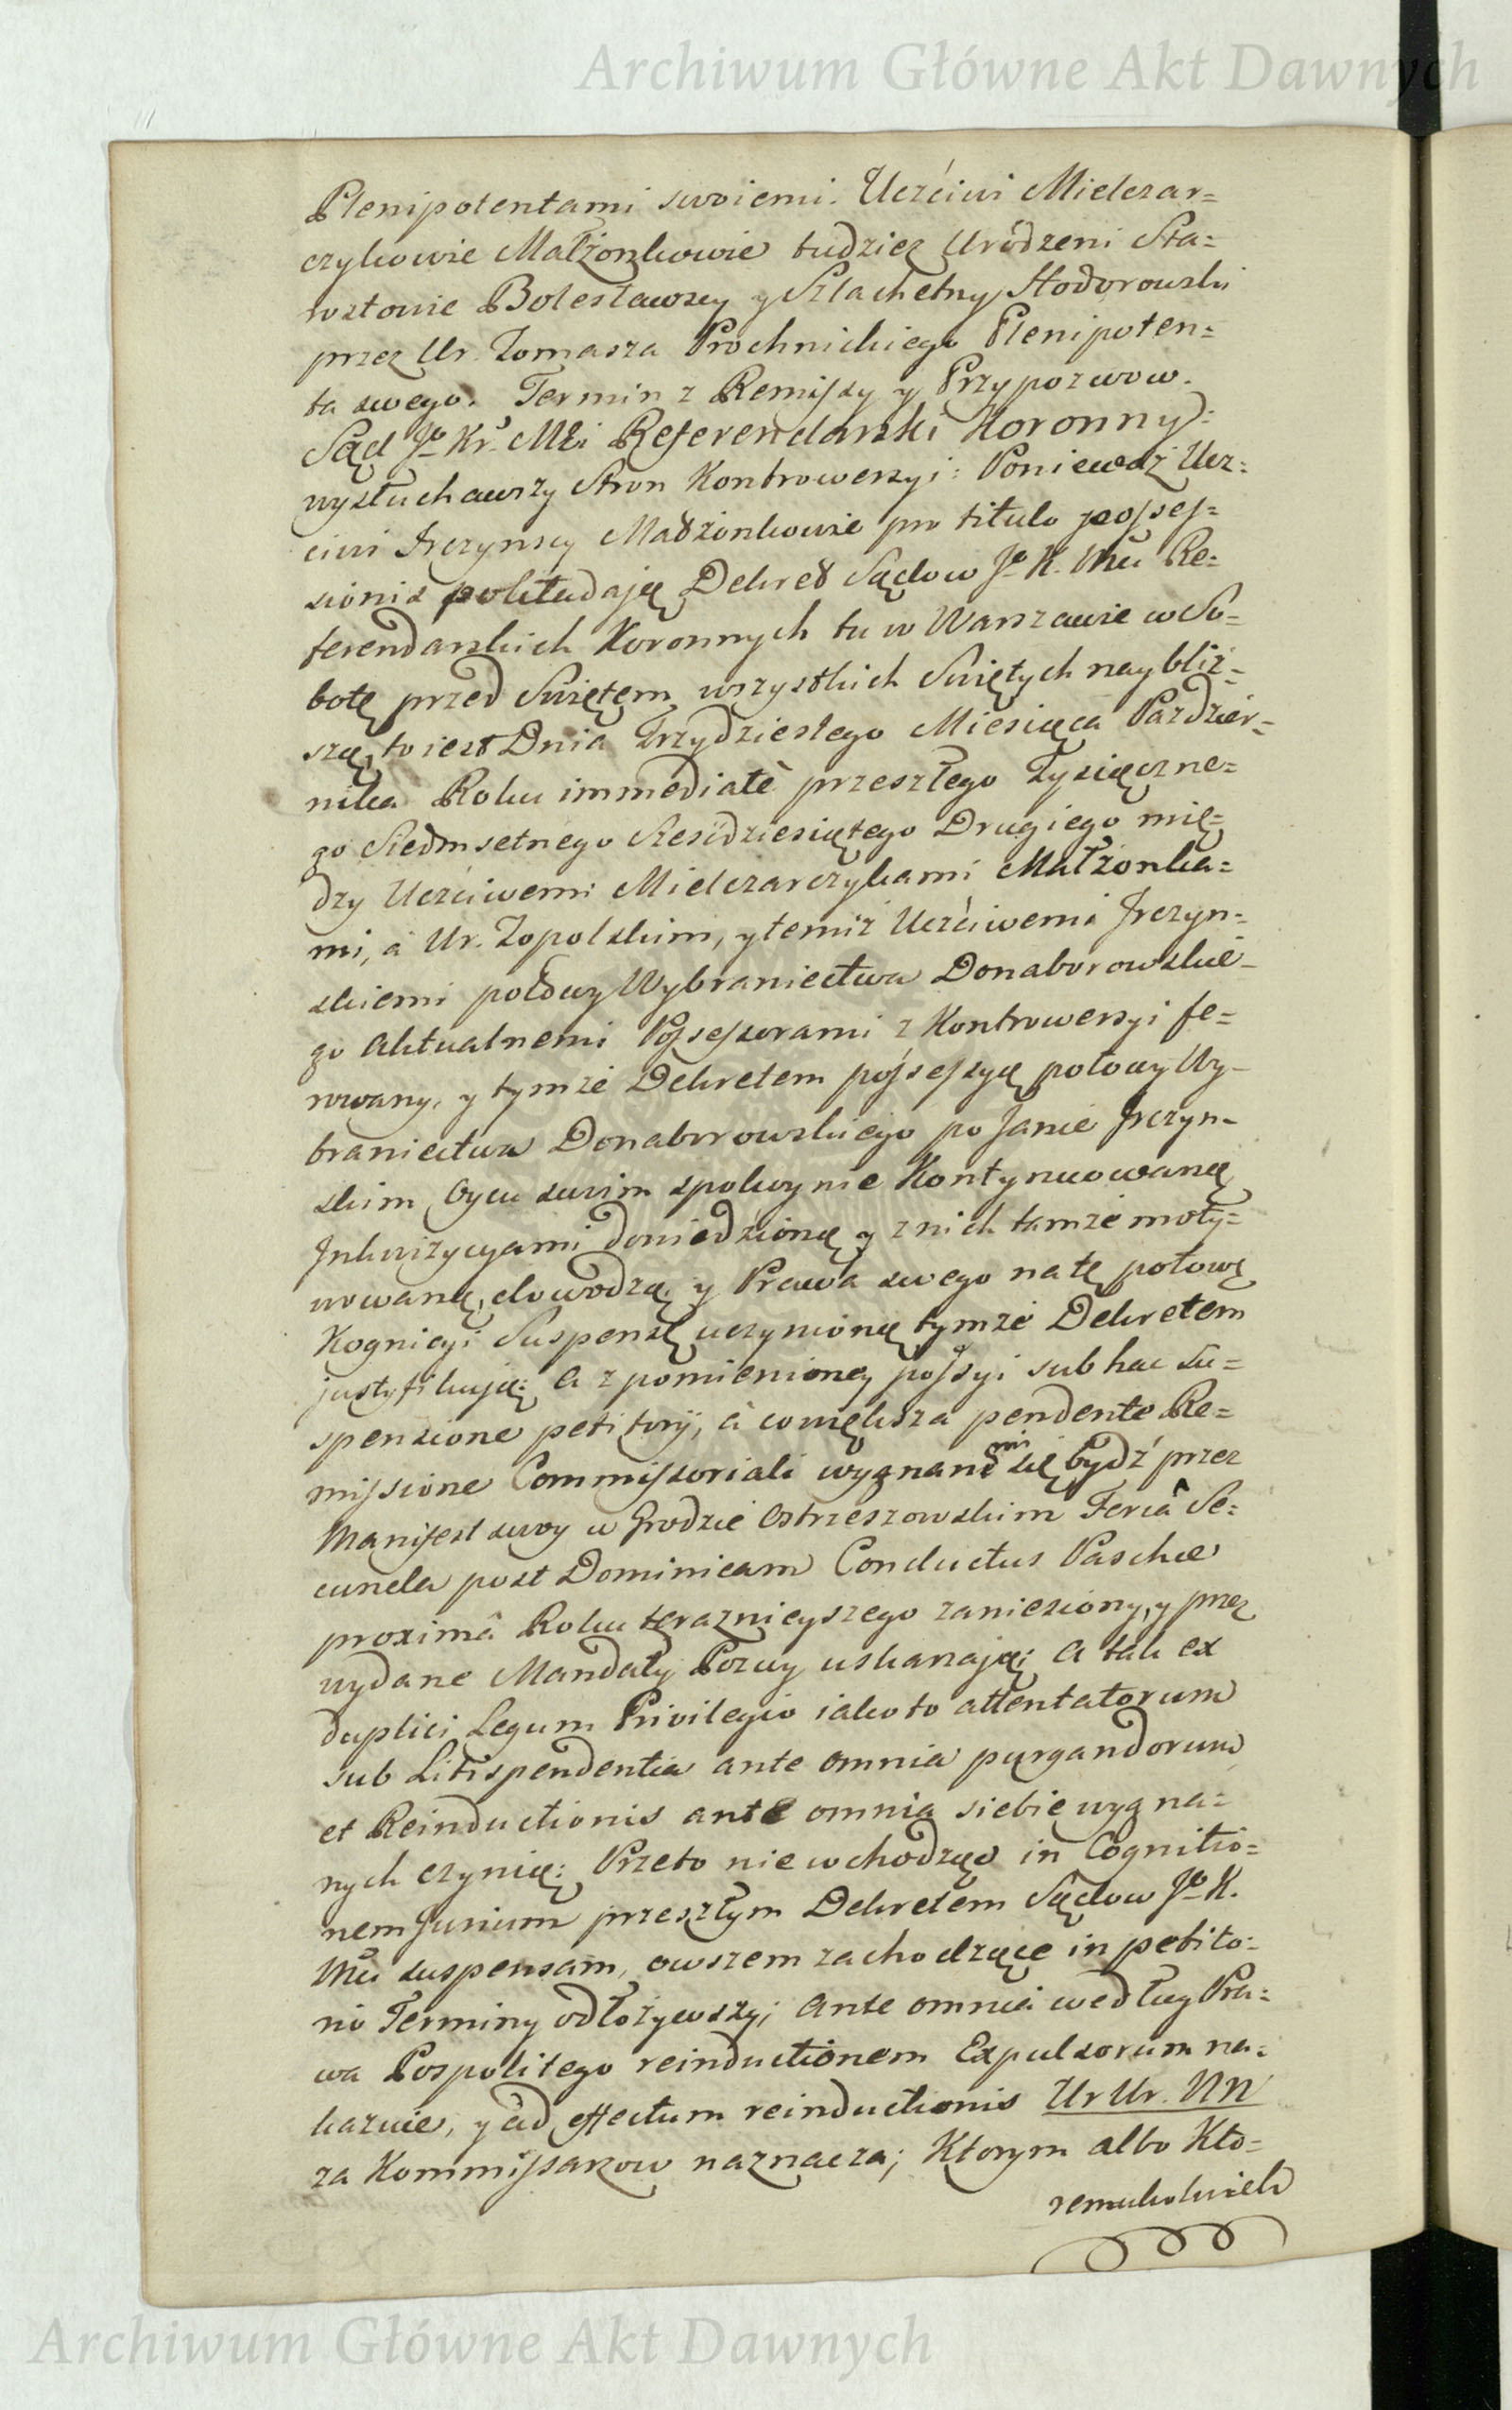 Archiwum Główne Akt Dawnych
Plenipotentami swoiemi. Uczciwi Mielczar=
czykowie Małżonkowie tudziez Urodzeni Sta=
wscy Bolesławscy y Szlachetny Stodorowski
przez Ur. Tomasza Prochnickiego Plenipoten=
ta swego. Termin z Remissy y Przypozwow.
Sąd Jo Kr. Mći Referendarski Koronny:
wysłuchawszy Stron Kontrowersyi: Ponieważ Ucz=
ciwi Jrczynscy Małżonkowie pro titulo posses=
sionis pokładają Dekret Sądow Jo K. Mći Re=
ferendarskich Koronnych tu w Warszawie w So=
botę przed Swiętem wszystkich Swiętych naybliż=
szą, to iest Dnia Trzydziestego Miesiąca Pazdzier=
nika Roku immediatè przeszłego Tysiączne=
go Siedmsetnego Sześdziesiątego Drugiego mię=
dzy Uczciwemi Mielczarczykami Małżonka=
mi, a Ur. Topolskim, y temiż Uczciwemi Jrczyn=
skiemi połowy Wybraniectwa Donaborowskie=
go Aktualnemi Possessorami z Kontrowersyi fe=
rowany, y tymże Dekretem possessyą połowy Wy=
braniectwa Donaborowskiego po Janie Jrczyn=
skim Oycu swim spokoynie Kontynuowaną
Inkwizycyami doniedzioną y z nich tamże moty=
wowaną, dowodzą, y Prawa swego na tę połowę
Kognicyi Suspensę uczynioną tymże Dekretem
justyfikują; A z pomienioney possyi sub hac su=
spensione petitorij, à co większa pendente Re=
missione Commissoriali wygnanemi się bydź przez
Manifest swoy w Grodzie Ostrzeszowskim Feriâ Se=
cunda post Dominicam Conductus Paschæ
proximâ Roku teraznieyszego zaniesiony, y przez
wydane Mandaty Pozwy uskarzają; A tak ex
duplici Legum Privilegio iako to attentatorum
sub Litispendentia ante omnia purgandorum
et Reinductionis ante omnia siebie wygna=
nych czynią; Przeto nie wchodząc in Cognitio=
nem Jurium przeszłym Dekretem Sądow Jo K.
Mći suspensam, owszem zachodzące in petito=
rio Terminy odłożywszy; Ante omnia według Pra=
wa Pospolitego reinductionem Expulsorum na=
kazuie, y ad effectum reinductionis Ur Ur. NN
za Kommissarzow naznacza; Ktorym albo Kto=
remukolwiek
Archiwum Główne Akt Dawnych